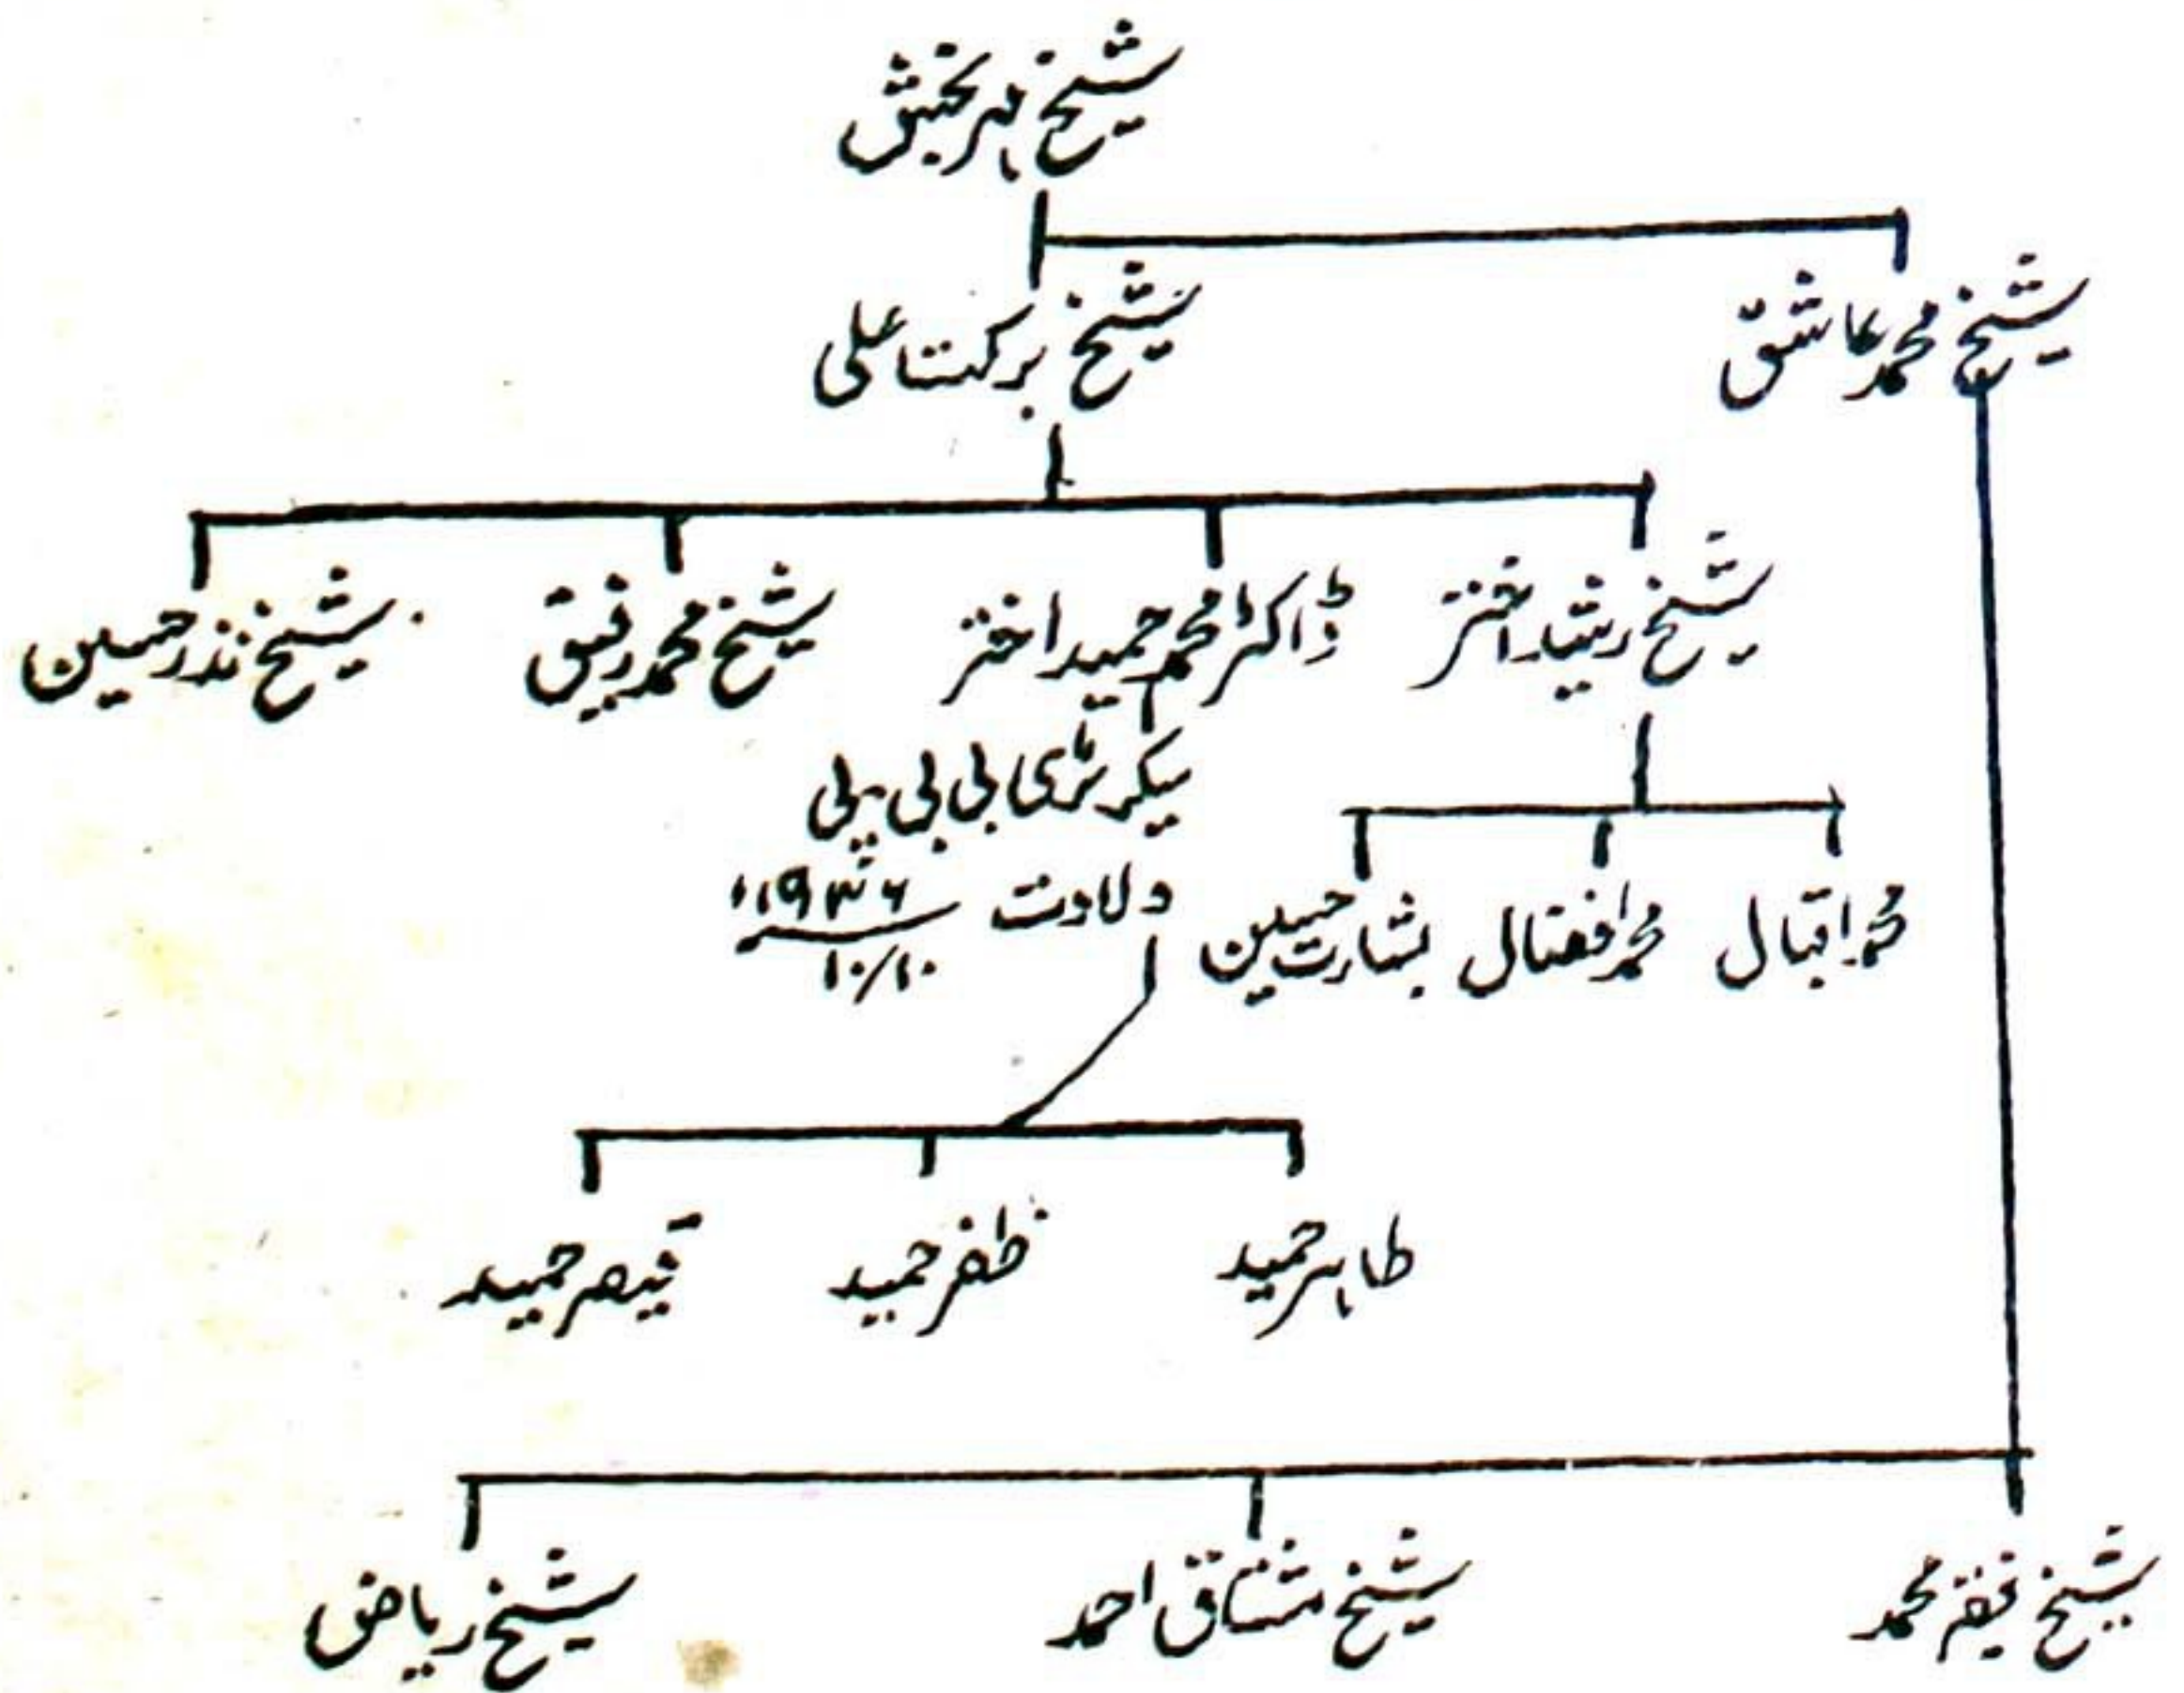 شیخ مہر بخش
شیخ محمد عاشق
شیخ برکت علی
شیخ رشید اختر
ڈاکٹر محمد حمید اختر
شیخ محمد رفیق
شیخ نذر حسین
سیکرٹری بی بی پی
ولادت ۱۹۳۶ء
۱۰/۱۰
محمد اقبال
محمد افضال
بشارت حسین
طاہر حمید
ظفر حمید
قیصر حمید
شیخ محمد
شیخ مشتاق احمد
شیخ ریاض